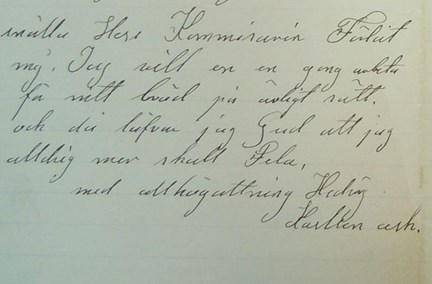 snälla Herr Kommisarin Förlåt
mig. Jag vill en en gong
få mitt bröd på ärligt sätt.
och då lofvar jag Gud att jag
alldrig mer skall Fela,
med allhögattning Hedvig
Karlsson